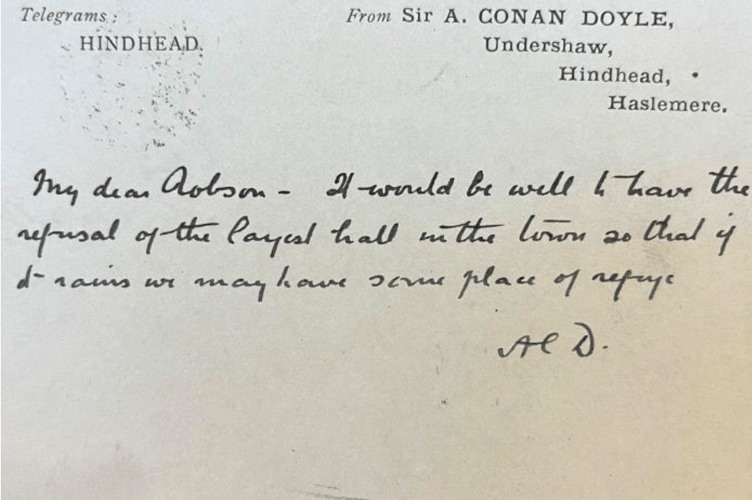 Telegrams:
HINDHEAD.
From Sir A. CONAN DOYLE,
Undershaw,
Hindhead,
Haslemere.
My dear Robson - It would be well to have the
refusal of the largest hall in the town so that if
it rains we may have some place of refuge
ACD.